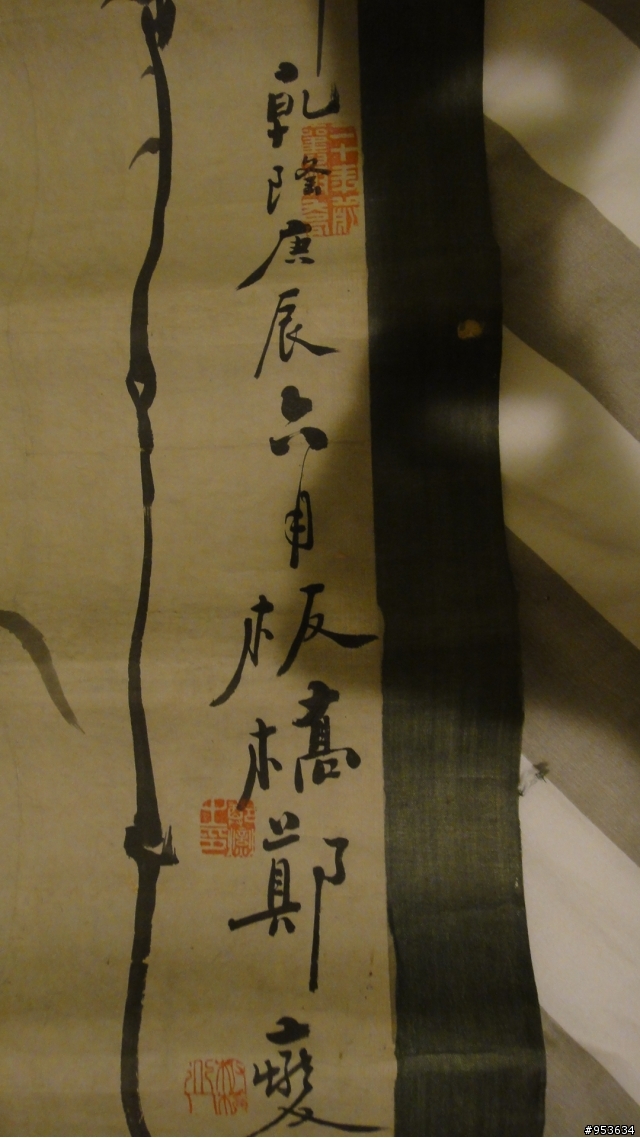 乾隆庚辰六月板橋鄭燮
#953634